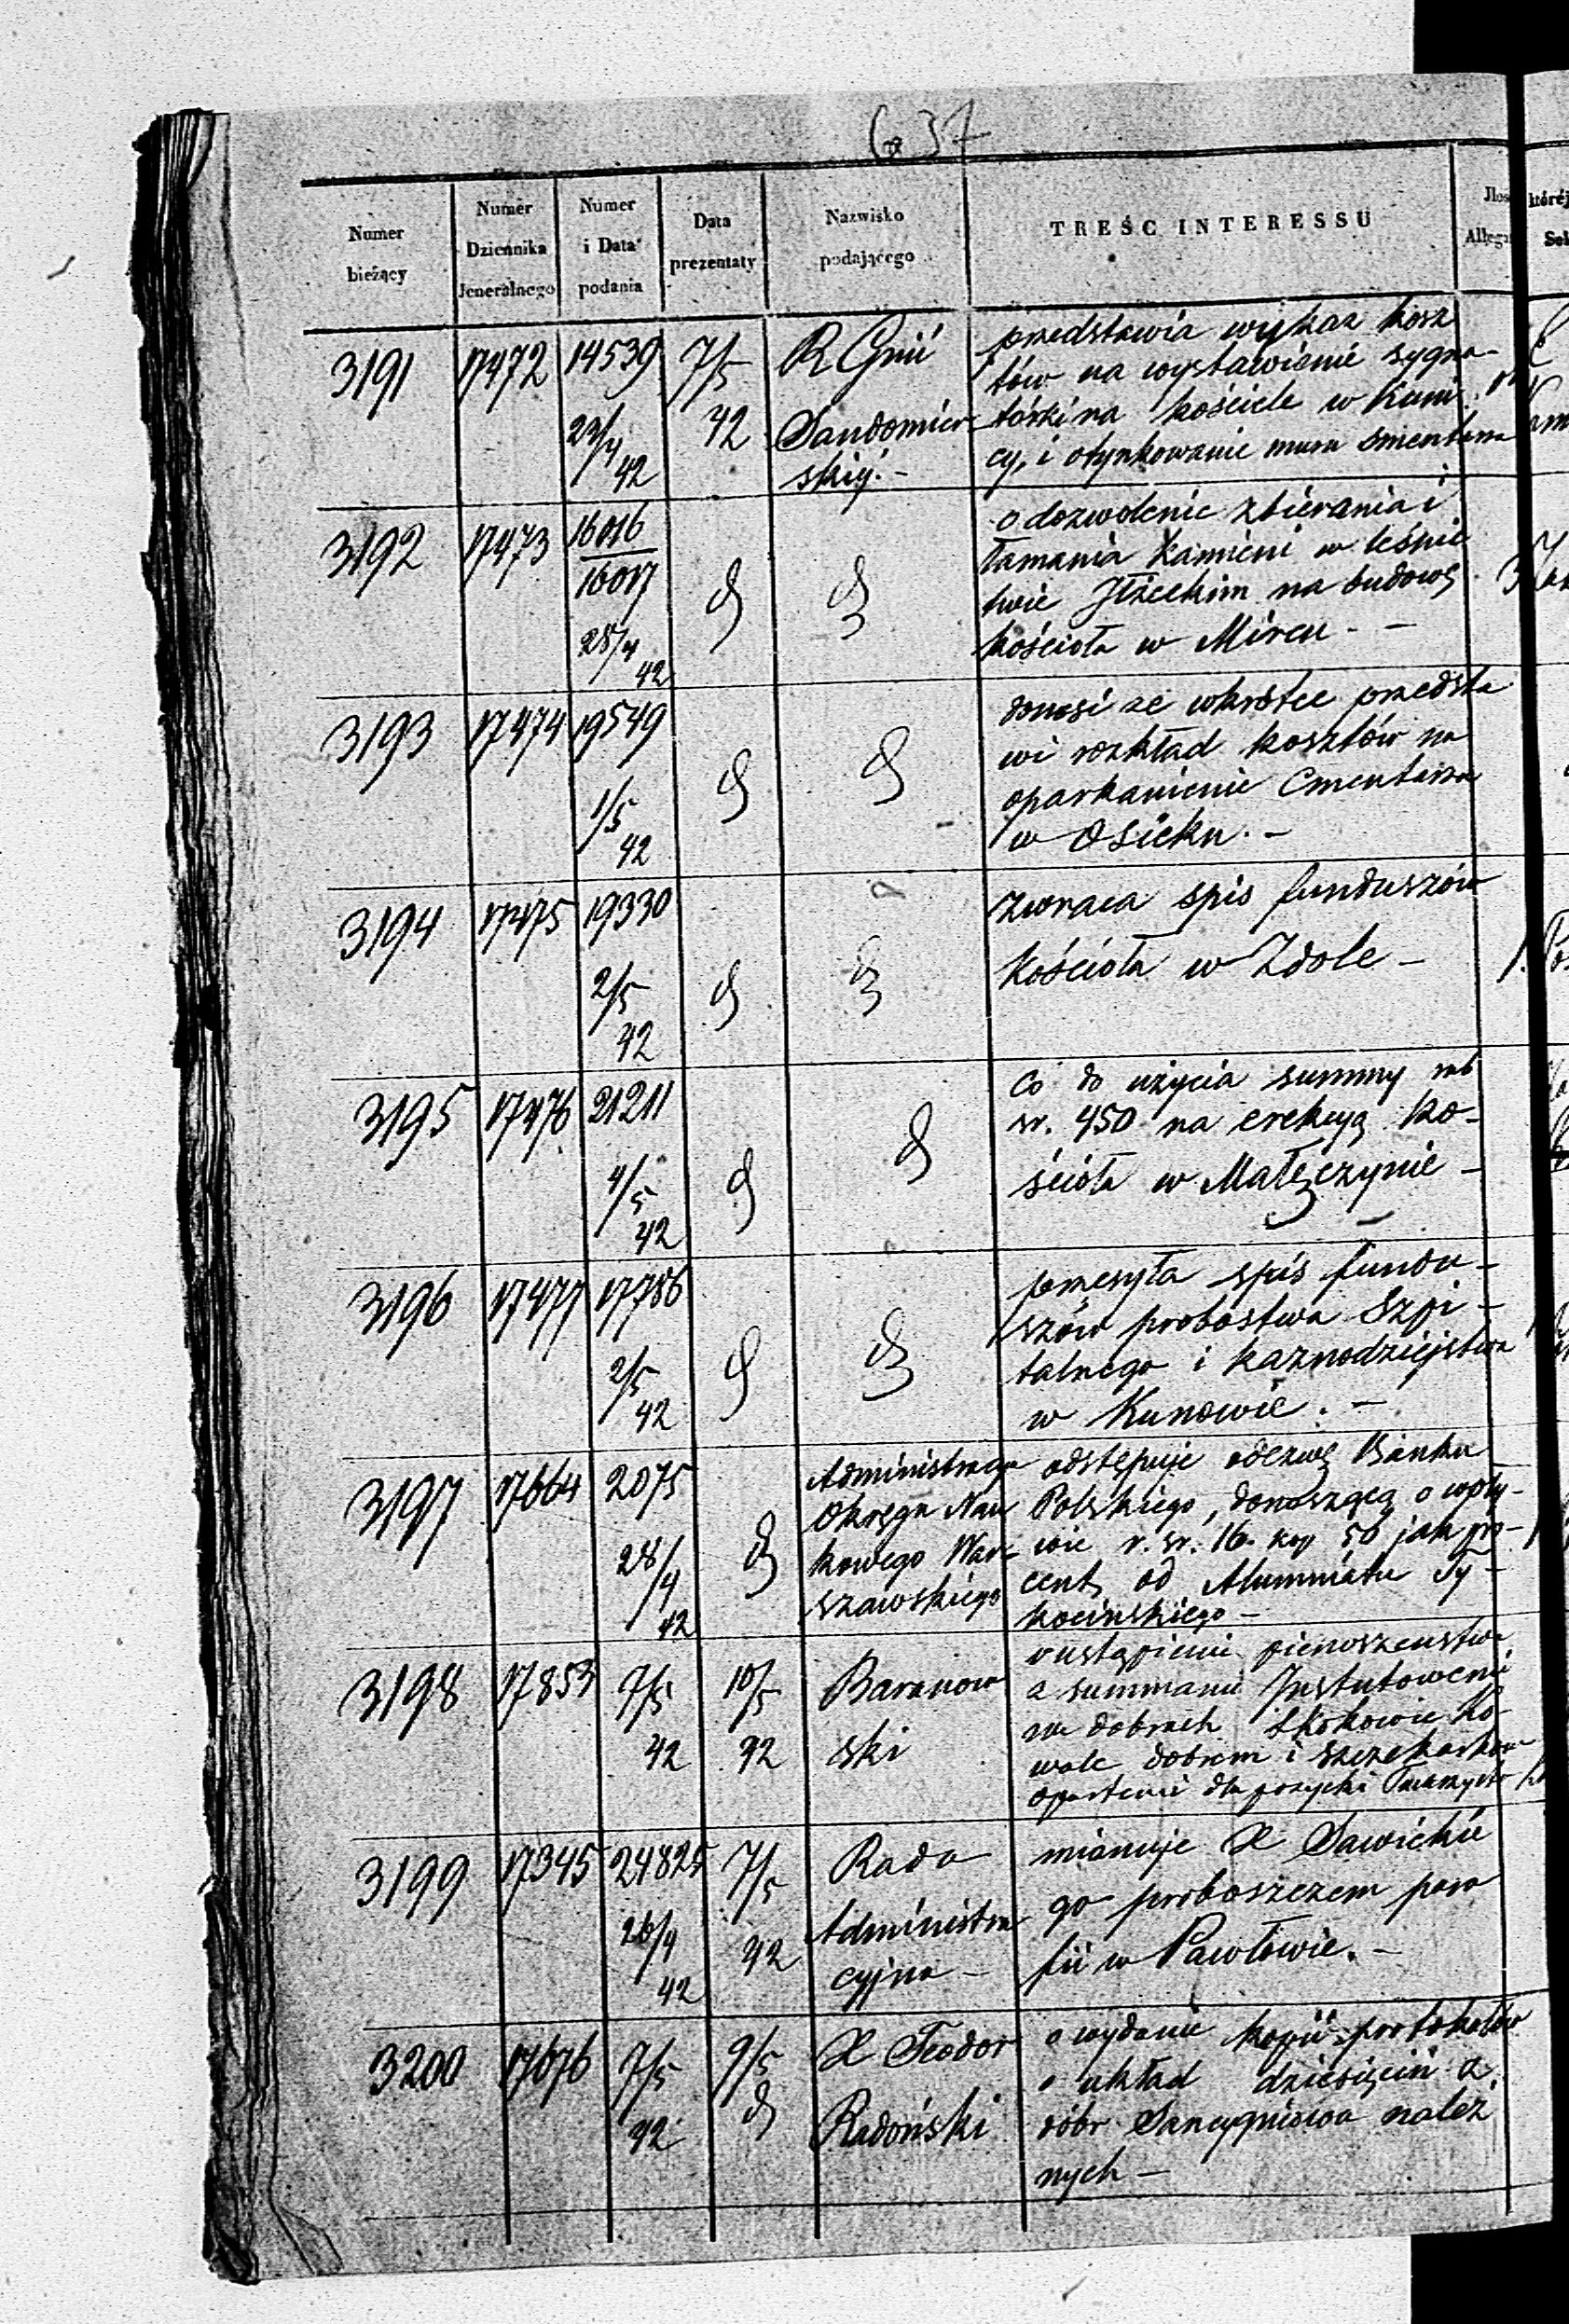 637
Numer bieżący
Numer Dziennika Jeneralnego
Numer i Data podania
Data prezentaty
Nazwisko podającego
TREŚĆ INTERESSU
3191 17472 14539 23/4 42 7/5 42
R Gnii
Sandomier
skiej. -
przedstawia wykaz kosz
tów na wystawienie sygna-
tórki na kościele w Kuni
cy, i otynkowanie muru smentarza
3192 17473 16016 16017 28/4 42
o dozwolenie zbierania i
łamania kamieni w leśnic
twie Iłżeckim na budowę
kościoła w Mircu. -
3193 17474 19549 1/5 42
donosi że wkrótce przedsta
wi rozkład kosztów na
oparkanienie Cmentarza
w Osieku. -
3194 17475 19330 2/5 42
zwraca spis funduszów
kościoła w Zdole -
3195 17476 21211 4/5 42
co do użycia summy rub
sr. 450 na erekcyą ko-
ścioła w Małęczynie -
3196 17477 17786 2/5 42
przesyła spis fundu-
szów probostwa Szpi-
talnego i kaznodziejstwa
w Kunowie. -
3197 17664 2075 28/4 42
Administracya
Okręgu Nau
kowego War-
szawskiego
odstępuje odezwę Banku
Polskiego, donoszącą o wpły-
wie r. sr. 16. kop 50 jak pro-
cent od Alumnatu Ty-
kocińskiego -
3198 17853 7/5 42 10/5 42
Baranow
ski
o ustąpienie pierwszeństwa
z summami Instutowemi
na dobrach Skokowie Ko-
wale dobrem i
dla pożyczki Towarzystw
3199 17345 24825 26/4 42 7/5 42
Rada
Administra
cyjna -
mianuje X Sawickie
go proboszczem para
fii w Pawłowie. -
3200 17676 7/5 42 9/5
X Teodor
Radoński
o wydanie kopii protokołów
o układ dziesięcin z
dóbr Sancygniowa należ
nych -